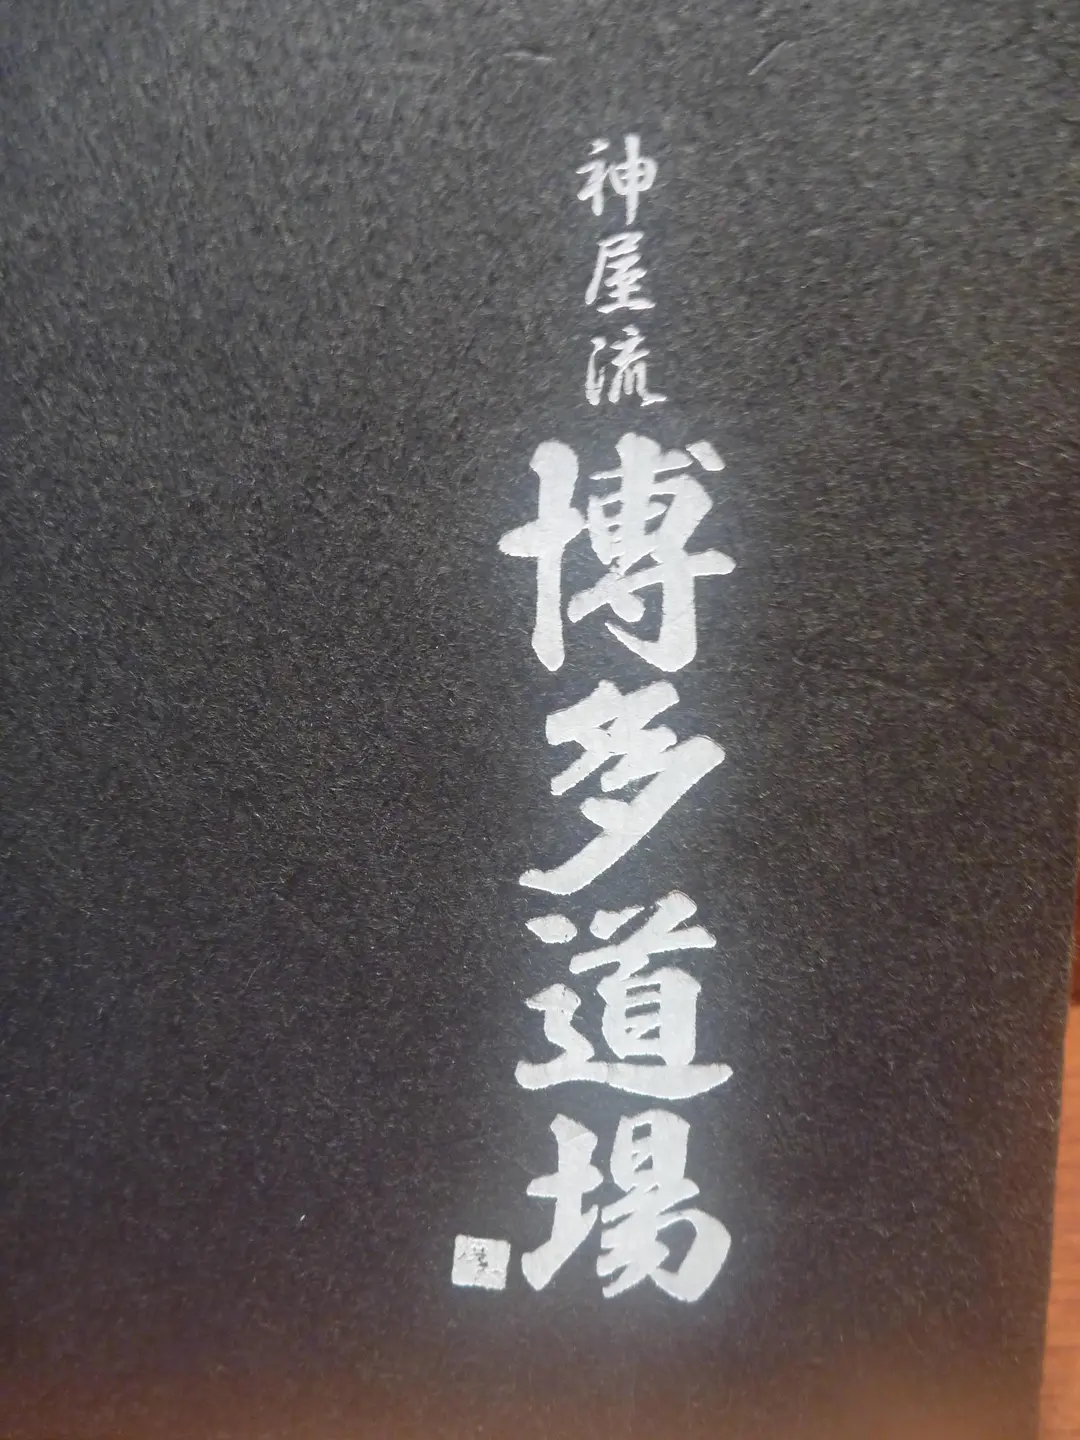 神屋流
博多道場